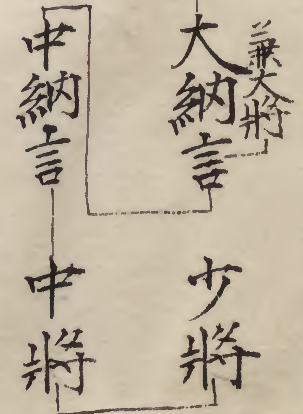 兼大將
大納言
少將
中納言
中將